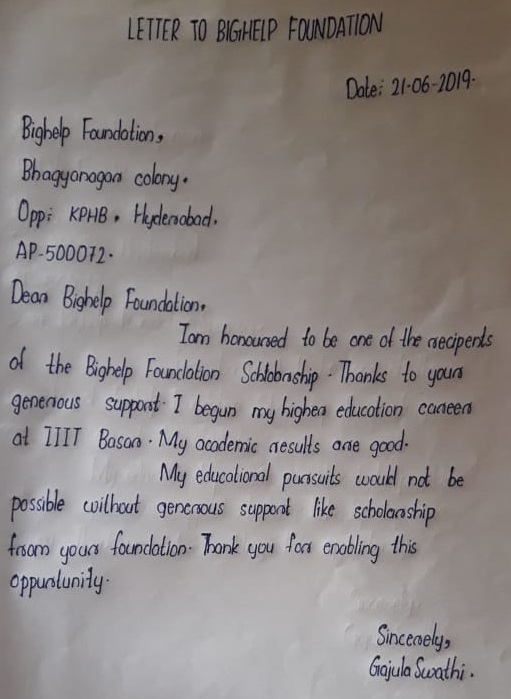 LETTER TO BIGHELP FOUNDATION
Date: 21-06-2019.
Bighelp Foundation,
Bhagyanagar colony.
Opp: KPHB, Hyderabad.
AP-500072.
Dear Bighelp Foundation,
Iam honoured to be one of the recipents
of the Bighelp Foundation Schlobrship. Thanks to your
generious support. I begun my higher education careen
at IIIT Basar. My academic results are good.
My educational pursuits would not be
possible without generious support like scholarship
from your foundation. Thank you for enabling this
oppurtunity.
Sincerely,
Gajula Swathi.